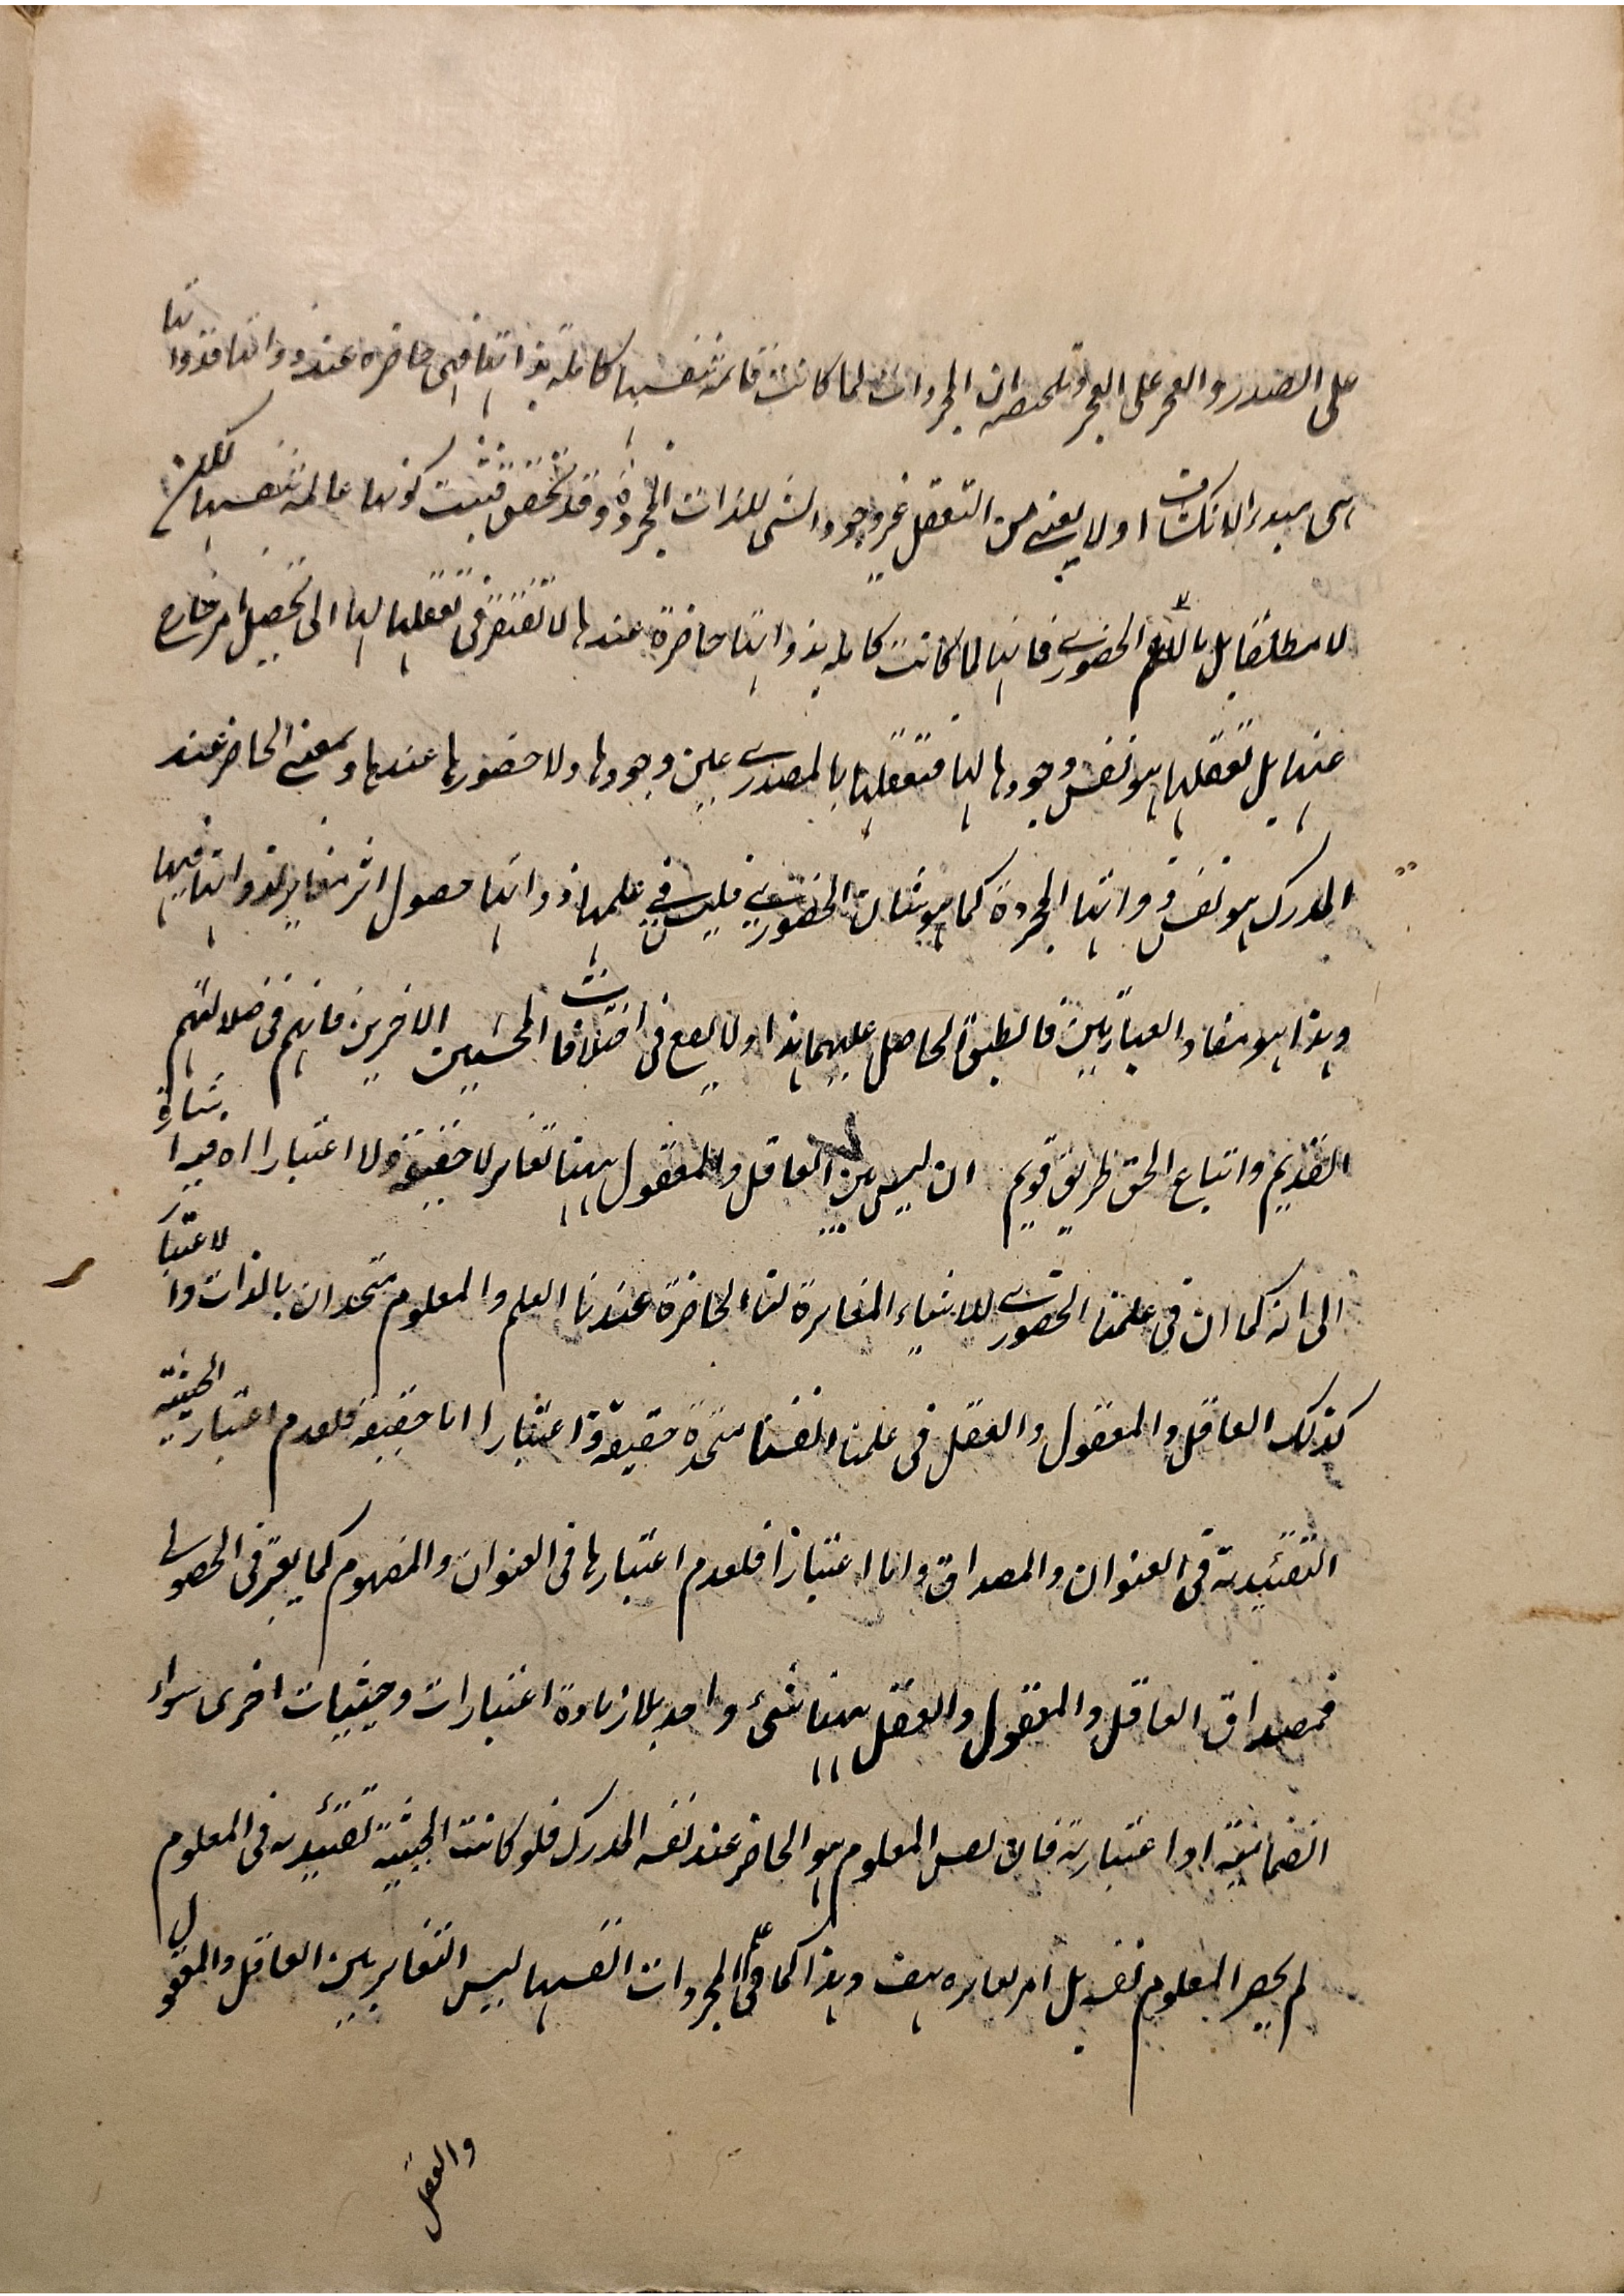 على الصدر والعجز على العجز وتلخيصه ان المجردات لما كانت قائمة بنفسها كاملة بذواتها فهي حاضرة عند ذواتها فذواتها
هى مبدء الانكشاف اولا يعنى من التعقل غير وجود الشى للذات المجردة وقد تحقق فيثبت كونها عالمة بنفسها لكن
لا مطلقا بل بالعلم الحضورى فانها لما كانت كاملة بذواتها حاضرة عندها لا تفتقر فى تعقلها لها الى تحصيل امر خارج
عنها بل تعقلها هو نفس وجودها لها فتعقلها بالمصدرى عين وجودها ولا حضورها عندها وبمعنى الحاضر عند
المدرك هو نفس ذواتها المجردة كما هو شان الحضورى فليس فى علمها ذواتها حصول اثر مغاير لذواتها فيها
وهذا هو مفاد العبارتين فانطبق الحاصل عليهما هذا ولا تقع فى اختلافات المحشيين الاخرين فانهم فى ضلالتهم
القديم واتباع الحق طريق قويم ان ليس بين العاقل والمعقول ههنا تغاير لا حقيقة ولا اعتبارا اه فيه اشارة
الى انه كما ان فى علمنا الحضورى للاشياء المغايرة لنا الحاضرة عندنا العلم والمعلوم متحدان بالذات والاعتبار
كذلك العاقل والمعقول والعقل فى علمنا انفسنا متحدة حقيقة واعتبارا اما حقيقة فلعدم اعتبار الحيثية
التقئيدية فى العنوان والمصداق واما اعتبارا فلعدم اعتبارها فى العنوان والمفهوم كما يعتبر فى الحصولى
فمصداق العاقل والمعقول والعقل ههنا شىء واحد بلا زيادة اعتبارات وحيثيات اخرى سواء
انضمامية او اعتبارية فان المعلوم هو الحاضر عند نفس المدرك فلو كانت الحيثية تقئيدية فى المعلوم
لم يحضر المعلوم نفسه بل امر يغايره هف وهذا كما فى علم المجردات انفسها ليس التغاير بين العاقل والمعقول
والعقل